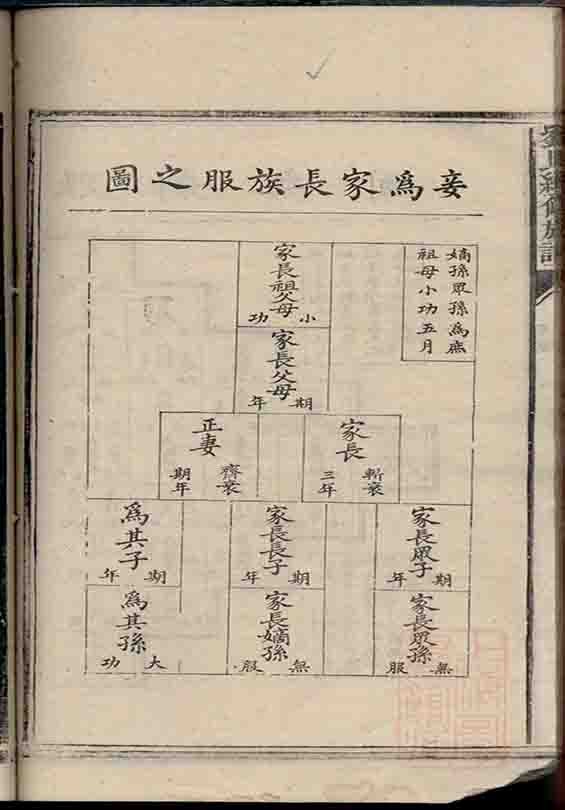 妾為家長族服之圖
嫡孫眾孫為庶
祖母小功五月
家長祖父母
小功
家長父母
期年
家長
斬衰
三年
正妻
齊衰
期年
家長眾子
期年
家長長子
期年
為其子
期年
家長眾孫
無服
家長嫡孫
無服
為其孫
大功